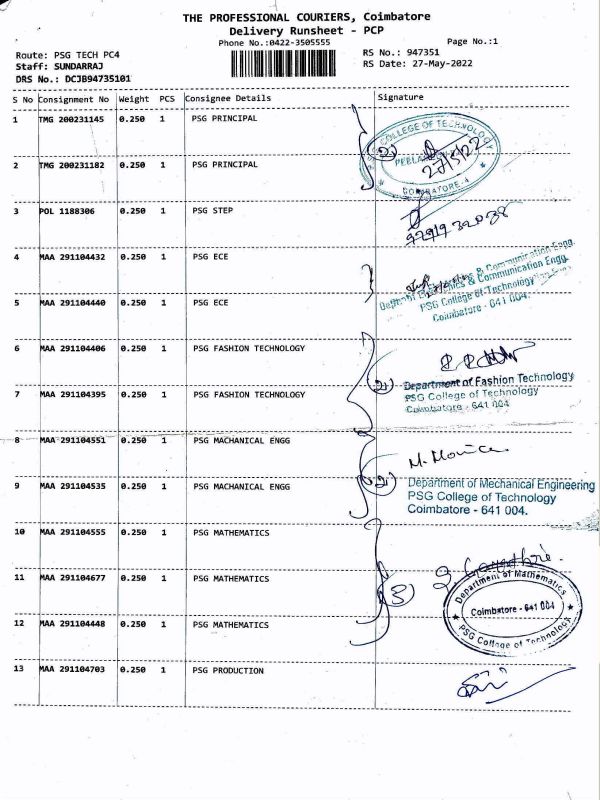 THE PROFESSIONAL COURIERS, Coimbatore
Delivery Runsheet - PCP
Phone No.:0422-3505555
Page No.:1
Route: PSG TECH PC4
RS No.: 947351
Staff: SUNDARRAJ
RS Date: 27-May-2022
DRS No.: DCJB94735101
S No Consignment No Weight PCS Consignee Details Signature
1 TMG 200231145 0.250 1 PSG PRINCIPAL
COLLEGE OF TECHNOLOGY
2
27/5/22
COIMBATORE-4
2 TMG 200231182 0.250 1 PSG PRINCIPAL
3 POL 1188306 0.250 1 PSG STEP
4 MAA 291104432 0.250 1 PSG ECE
& Communication Engg.
PSG College of Technology
Coimbatore - 641 004.
5 MAA 291104440 0.250 1 PSG ECE
6 MAA 291104406 0.250 1 PSG FASHION TECHNOLOGY
2
Department of Fashion Technology
PSG College of Technology
Coimbatore - 641 004
7 MAA 291104395 0.250 1 PSG FASHION TECHNOLOGY
8 MAA 291104551 0.250 1 PSG MACHANICAL ENGG
M. Monica
2
Department of Mechanical Engineering
PSG College of Technology
Coimbatore - 641 004.
9 MAA 291104535 0.250 1 PSG MACHANICAL ENGG
10 MAA 291104555 0.250 1 PSG MATHEMATICS
11 MAA 291104677 0.250 1 PSG MATHEMATICS
3
Department of Mathematics
Coimbatore - 641 004
PSG College of Technology
12 MAA 291104448 0.250 1 PSG MATHEMATICS
13 MAA 291104703 0.250 1 PSG PRODUCTION